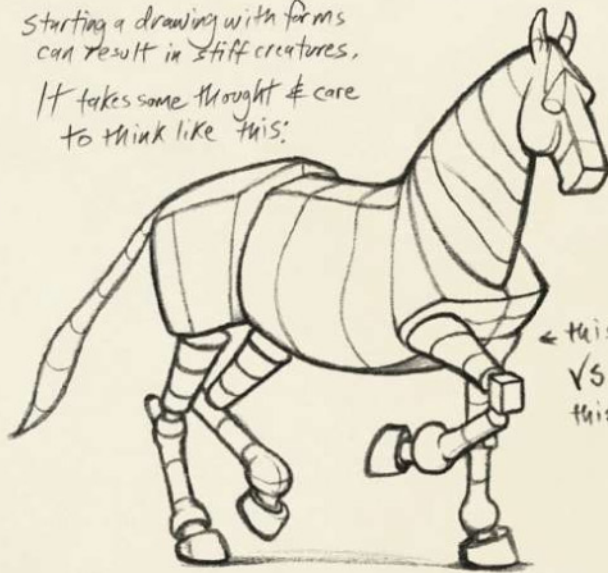 Starting a drawing with forms
can result in stiff creatures.
It takes some thought & care
to think like this:
← this
VS
this